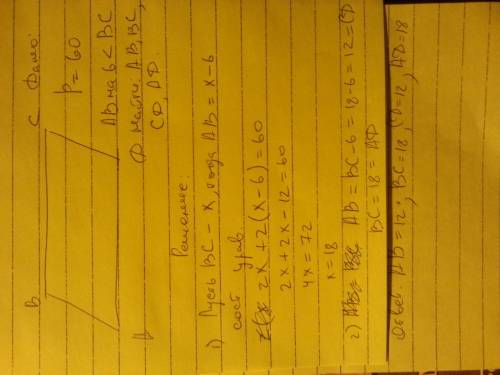 B C Дано:
P = 60
AB на 6 < BC
A D Найти: AB, BC,
CD, AD.
Решение:
1) Пусть BC - x, тогда AB = x - 6
сост урав.
2x + 2(x - 6) = 60
2x + 2x - 12 = 60
4x = 72
x = 18
2) AB = BC - 6 = 18 - 6 = 12 = CD
BC = 18 = AD
Ответ: AB = 12, BC = 18, CD = 12, AD = 18